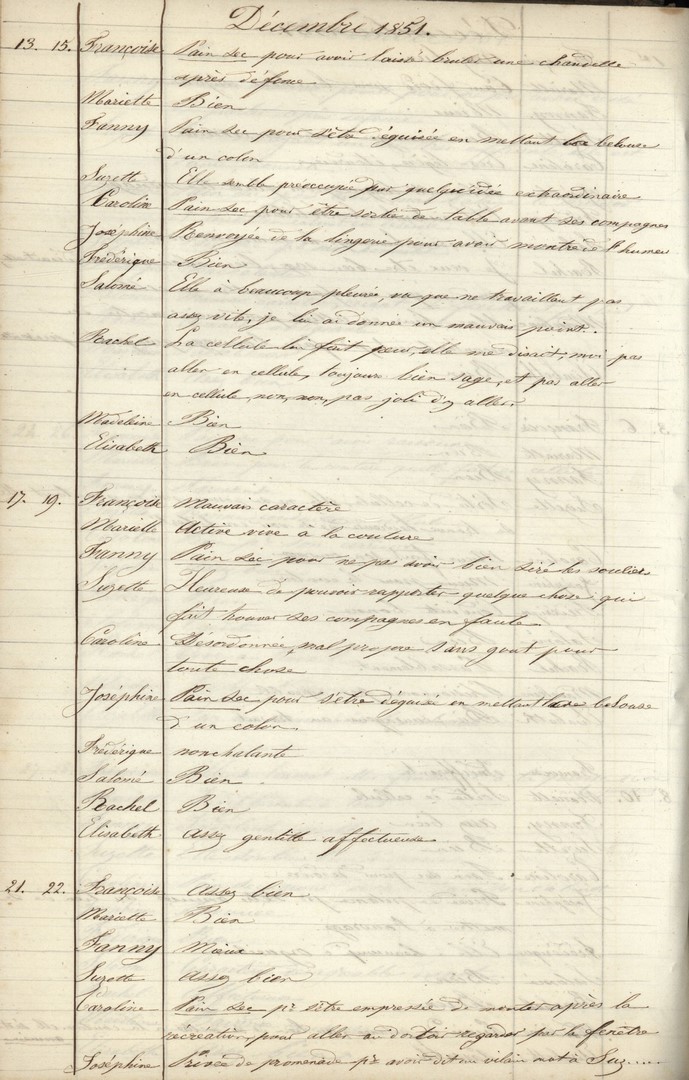 Décembre 1851.
13. 15. Françoise Pain sec pour avoir laissé bruler une chandelle
après défense
Mariette Bien
Fanny Pain sec pour s'être déguisée en mettant la belouse
d'un colon
Suzette Elle semble préoccupée par quelqu'idée extraordinaire
Caroline Pain sec pour être sortie de table avant ses compagnes
Joséphine Renvoyée de la lingerie pour avoir montré de l'humeur
Frédérique Bien
Salomé Elle à beaucoup pleurée, vu que ne travaillant pas
assez vite, je lui ai donnée un mauvais point.
Rachel La cellule lui fait peur, elle me disait, moi pas
aller en cellule, toujours bien sage, et pas aller
en cellule, non, non, pas joli d'y aller.
Madeleine Bien
Elisabeth Bien
17. 19. Françoise Mauvais caractère
Mariette Active vive à la couture
Fanny Pain sec pour ne pas avoir bien ciré les souliers
Suzette Heureuse de pouvoir rapporter quelque chose qui
fait trouver ses compagnes en faute
Caroline Désordonnée, mal propre sans gout pour
toute chose
Joséphine Pain sec pour s'être déguisée en mettant belouse
d'un colon.
Frédérique nonchalante
Salomé Bien
Rachel Bien
Elisabeth assez gentille affectueuse
21. 22. Françoise Assez bien
Mariette Bien
Fanny Mieux
Suzette assez bien
Caroline Pain sec pr s'être empressée de monter après la
récréation, pour aller au dortoir regarder par la fenêtre
Joséphine Privée de promenade pr avoir dit un vilain mot à Suz....